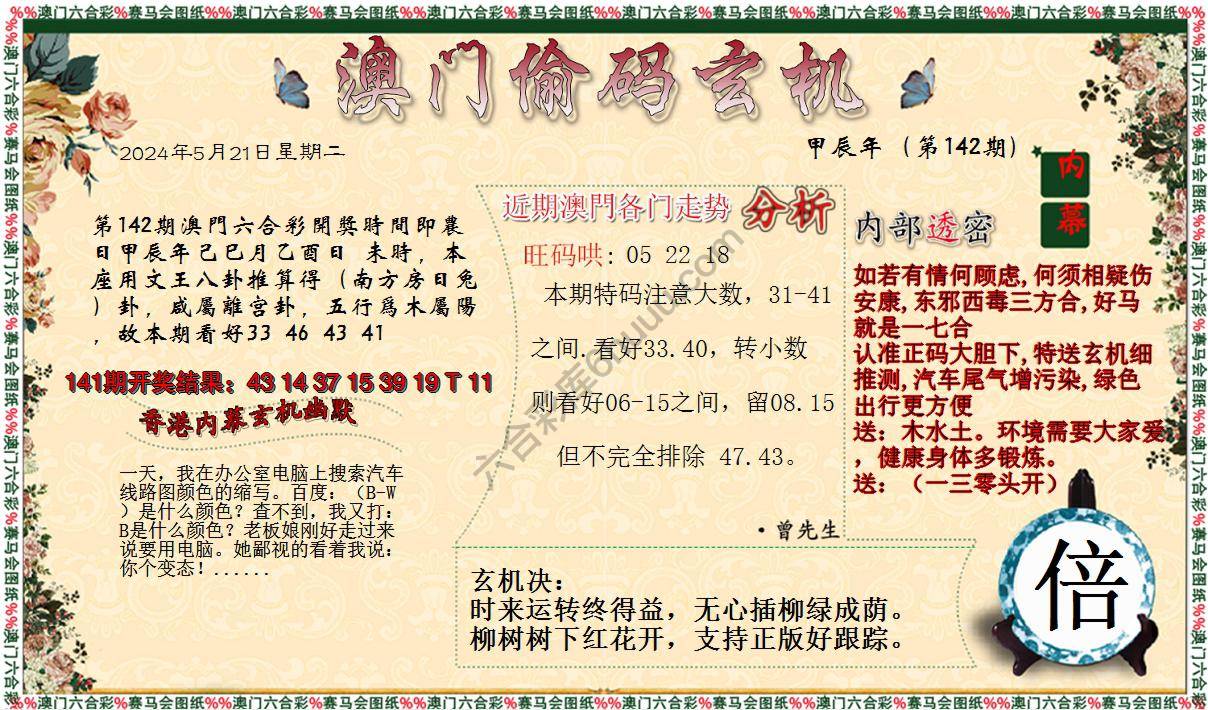 %%澳门六合彩%赛马会图纸%%澳门六合彩%赛马会图纸%%澳门六合彩%赛马会图纸%%澳门六合彩%赛马会图纸%%澳门六合彩%赛马会图纸%%澳门六合彩%赛马会图纸
澳门偷码玄机
2024年5月21日星期二
甲辰年（第142期）
第142期澳門六合彩開獎時間即農
日甲辰年己巳月乙酉日 未時，本
座用文王八卦推算得（南方房日兔
）卦，咸屬離宫卦，五行爲木屬陽
，故本期看好33 46 43 41
141期开奖结果：43 14 37 15 39 19 T 11
香港内幕玄机幽默
一天，我在办公室电脑上搜索汽车
线路图颜色的缩写。百度：（B-W
）是什么颜色？查不到，我又打：
B是什么颜色？老板娘刚好走过来
说要用电脑。她鄙视的看着我说：
你个变态！......
近期澳門各门走势 分析
旺码哄: 05 22 18
本期特码注意大数，31-41
之间.看好33.40，转小数
则看好06-15之间，留08.15
但不完全排除 47.43。
·曾先生
内幕
内部透密
如若有情何顾虑,何须相疑伤
安康,东邪西毒三方合,好马
就是一七合
认准正码大胆下,特送玄机细
推测,汽车尾气增污染,绿色
出行更方便
送：木水土。环境需要大家爱
，健康身体多锻炼。
送：（一三零头开）
玄机决：
时来运转终得益，无心插柳绿成荫。
柳树树下红花开，支持正版好跟踪。
倍
%%澳门六合彩%赛马会图纸%%澳门六合彩%赛马会图纸%%澳门六合彩%赛马会图纸%%澳门六合彩%赛马会图纸%%澳门六合彩%赛马会图纸%%澳门六合彩%赛马会图纸